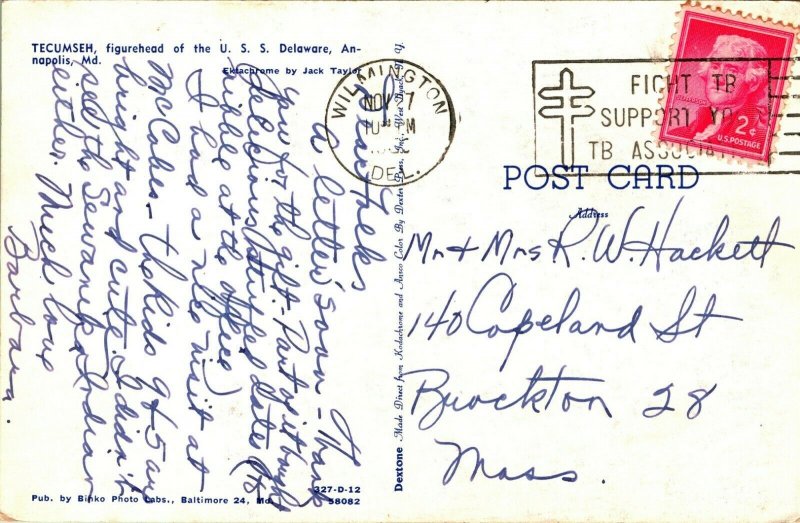 TECUMSEH, figurehead of the U. S. S. Delaware, An-
napolis, Md.
Ektachrome by Jack Taylor
Dear Folks
A letter soon - Thank
you for the gift. - Part of it bought
delicious stuffed dates (to
nibble at the office)
I had a nice visit at
McCabes - the kids 9 & 5 are
bright and cute. I didn't
see the Sewanika Indian
either. Much love
Barbara.
Pub. by Binko Photo Labs., Baltimore 24, Md.
327-D-12
58082
Dextone Made Direct from Kodachrome and Ansco Color By Dexter Press, Inc., West Nyack, N. Y.
WILMINGTON
NOV 7
DEL.
FIGHT TB
SUPPORT
TB
2¢
U.S. POSTAGE
POST CARD
Address
Mr + Mrs R. W. Hackett
140 Copeland St
Brockton 28
Mass.